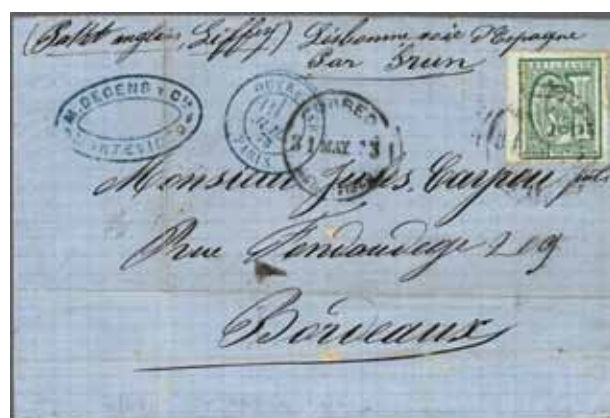 (Pakbt anglais, Liffey) Lisbonne voie d'Espagne
Par Irun
M. DEGENS Y CIA
MONTEVIDEO
PARIS
CORREO
31 MAY. 73
10
Monsieur Jules
Rue Fondaudege 209
Bordeaux